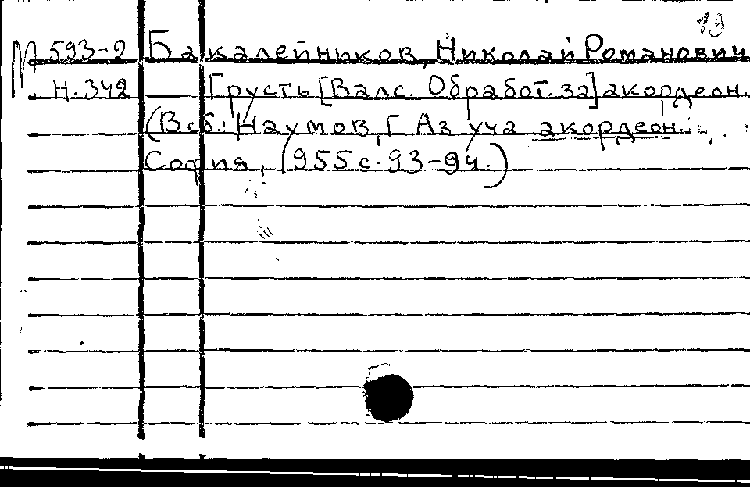 19
М 593-2 Бакалейников, Николай Романович
Н. 342 Грусть [Валс. Обработ. за] акордеон.
(В сб.: Наумов, Г Аз уча акордеон...
София, 1955 с. 93-94.)